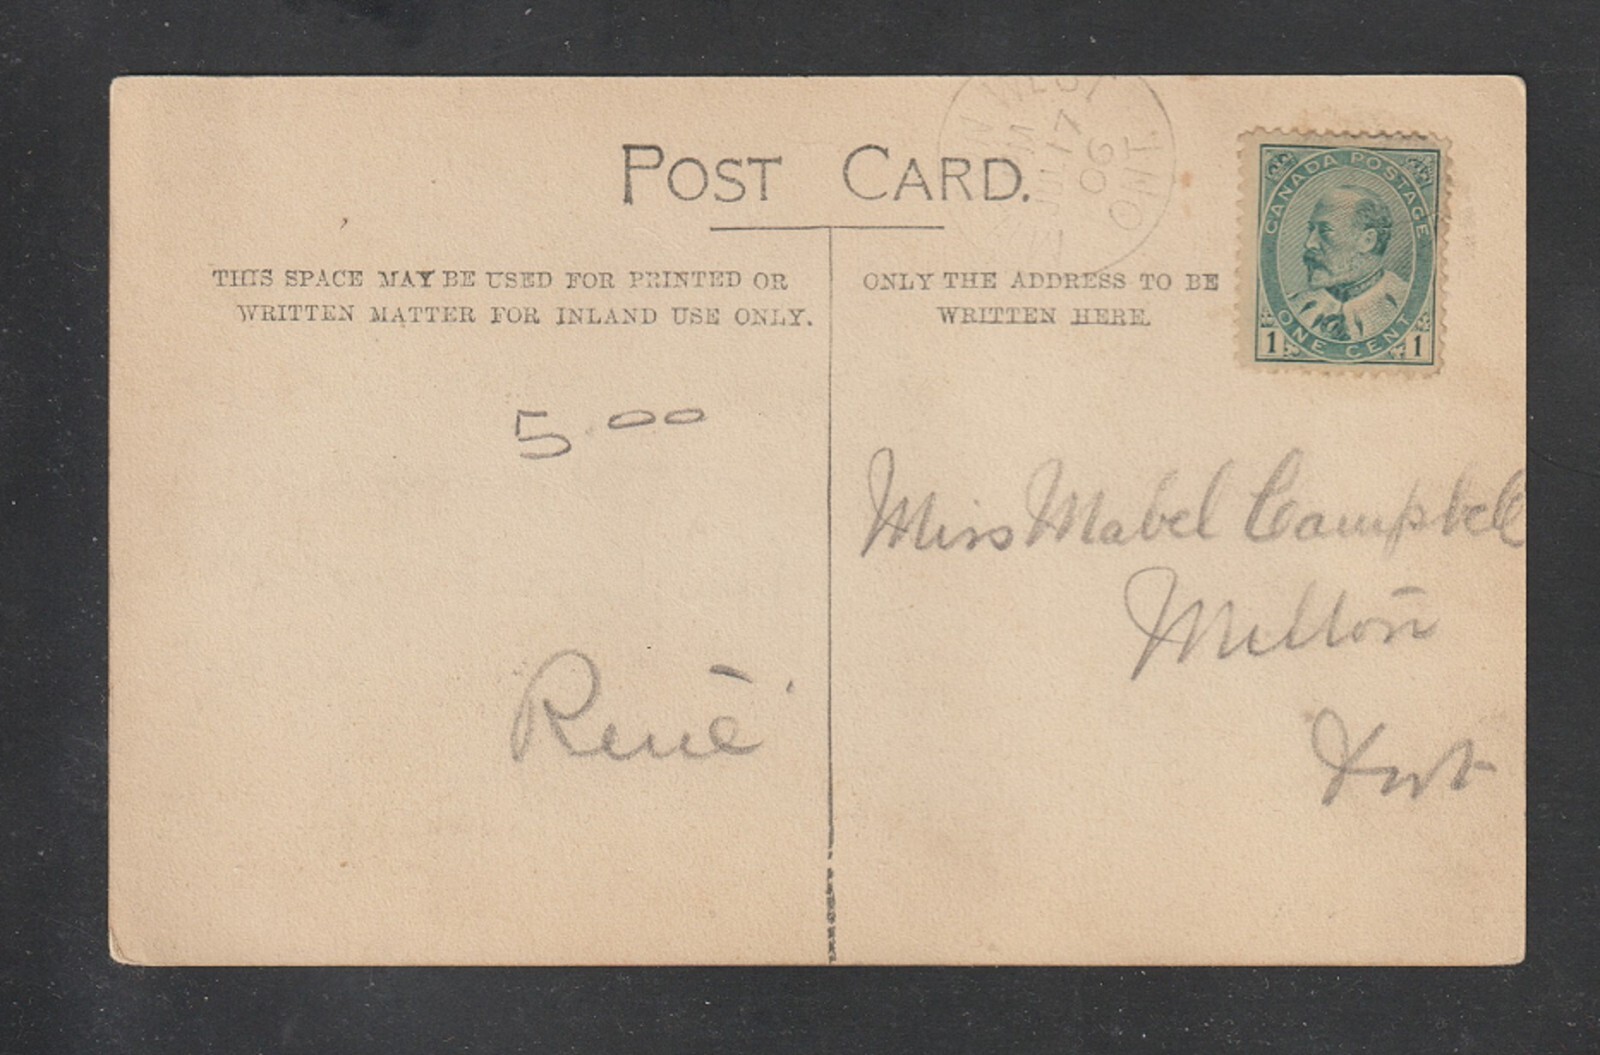 POST CARD.
THIS SPACE MAY BE USED FOR PRINTED OR
WRITTEN MATTER FOR INLAND USE ONLY.
ONLY THE ADDRESS TO BE
WRITTEN HERE.
WEST
JUL 17
06
ONT
CANADA POSTAGE
ONE CENT
1 1
5.00
René
Miss Mabel Campbell
Milton
Ont